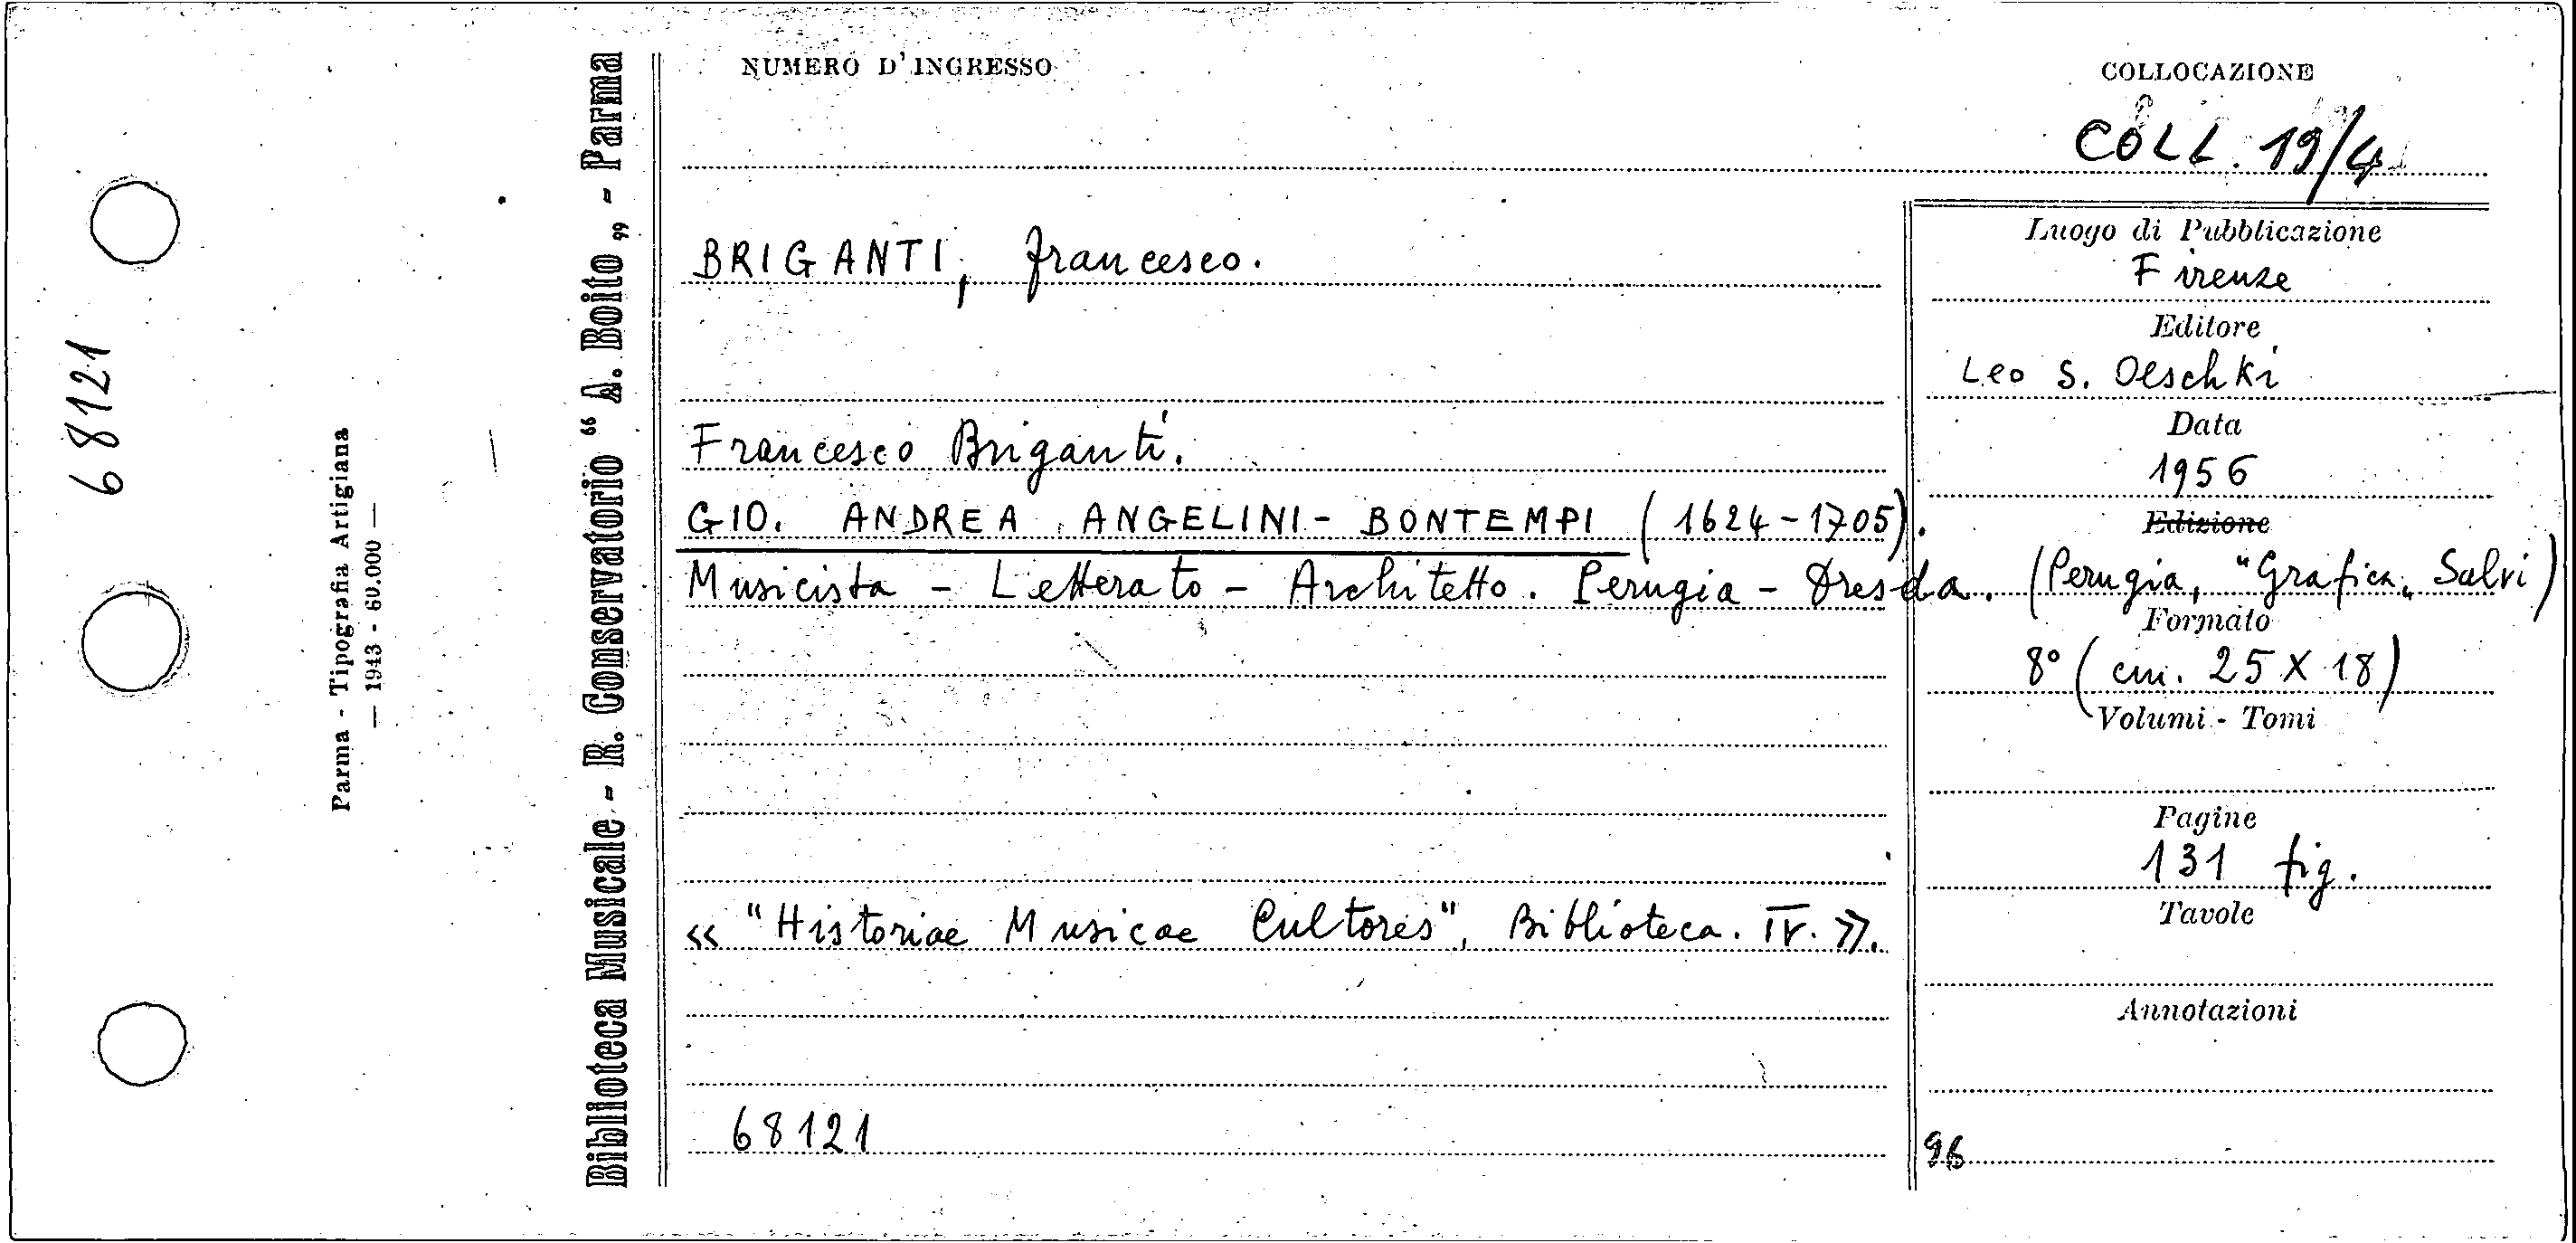 68121
Parma - Tipografia Artigiana
— 1943 - 60.000 —
Biblioteca Musicale - R. Conservatorio “ A. Boito „ - Parma
NUMERO D'INGRESSO
COLLOCAZIONE
COLL. 19/4
BRIGANTI, Francesco.
Francesco Briganti.
GIO. ANDREA ANGELINI-BONTEMPI (1624-1705).
Musicista - Letterato - Architetto. Perugia - Dresda.
« "Historiae Musicae Cultores", Biblioteca. IV. ».
68121
Luogo di Pubblicazione
Firenze
Editore
Leo S. Oeschki
Data
1956
Edizione
(Perugia, "Grafica„ Salvi)
Formato
8° (cm. 25 X 18)
Volumi - Tomi
Pagine
131 fig.
Tavole
Annotazioni
96